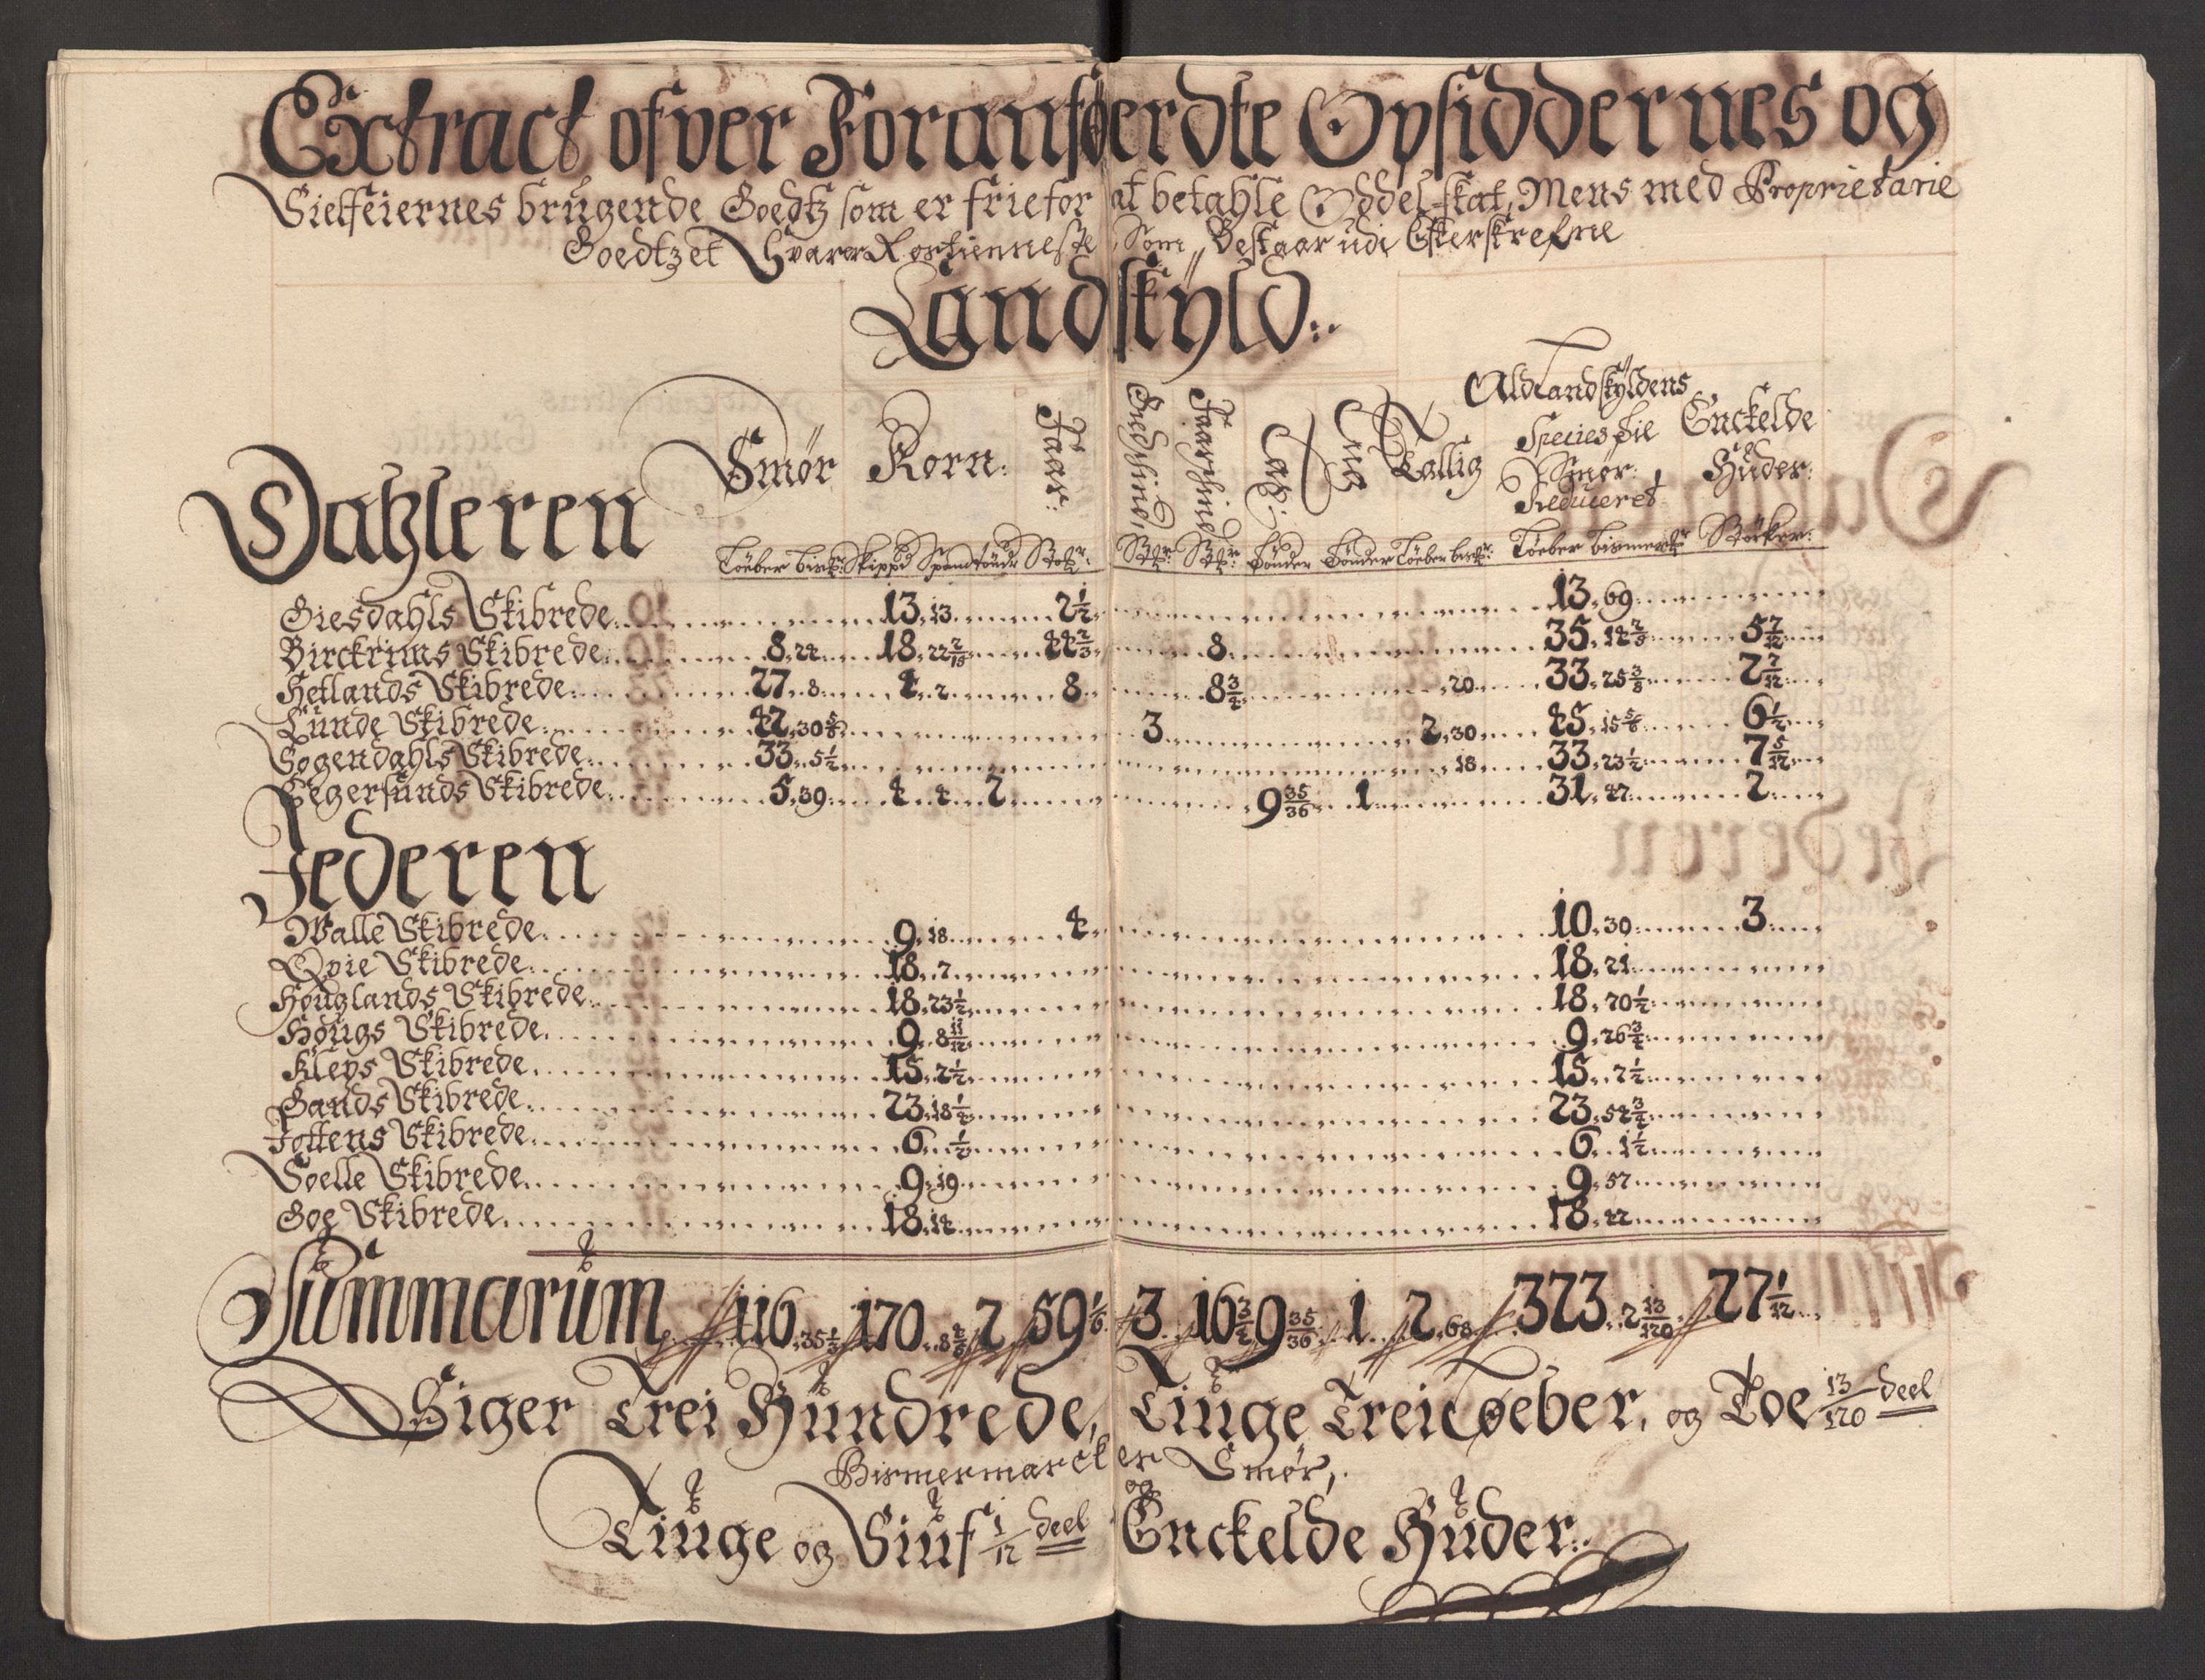 Extract ofver Foranførdte Opsiddernes og
Sielfeiernes brugende Goedtz som er frie for at betahle Oddel-skat, Mens med Proprietarie
Goedtzet Svarer Rostienneste, Som Bestaar udi Efterskrefne
Landskÿld:.
Dahleren Smør Korn: Faar: Faarschind Cald Tallig Ald Landskÿldens Species til Smør: Reduceret Enckelde Huder:
Løeber bismr: Skippd Spand tönder Støkr: Støkr: Støkr: Tönder Tönder Løeber bismr: Løeber bismerkr Støcker:
Giesdahls Skibrede 13. 13 2½ 13. 69
Birckrims Skibrede 8. 24 18. 22 2/15 44⅔ 8 35. 5 7/12
Hetlands Skibrede 27. 8 4. 2 8 8¾ 20 33. 25⅜ 2 7/12
Lunde Skibrede 42. 30⅝ 3 2. 30 45. 15⅝ 6½
Sogendahls Skibrede 33. 5½ 18 33. 23½ 7 5/12
Eegersunds Skibrede 5. 39 4. 4 2 9 35/36 1 31. 47 2
Jederen
Walle Skibrede 9. 18 4 10. 30 3
Qvie Skibrede 18. 7 18. 21
Houglands Skibrede 18. 23½ 18. 70½
Hougs Skibrede 9. 8 11/12 9. 26¾
Kleps Skibrede 15. 2½ 15. 7½
Gands Skibrede 23. 18½ 23. 54¾
Jottens Skibrede 6. ½ 6. 1½
Soelle Skibrede 9. 19 9. 57
Goe Skibrede 18. 14 18. 42
Summarum 116. 35⅓ 170. 2 59⅙ 3 16¾ 9 35/36 1 2. 68 323. 2 13/120 27 1/12
Siger Trei Hundrede, Tiuge Trei Løeber, og Toe 13/120 deel
Bismermarcker Smør,
og
Tiuge og Siuf 1/12 deel Enckelde Huder:.